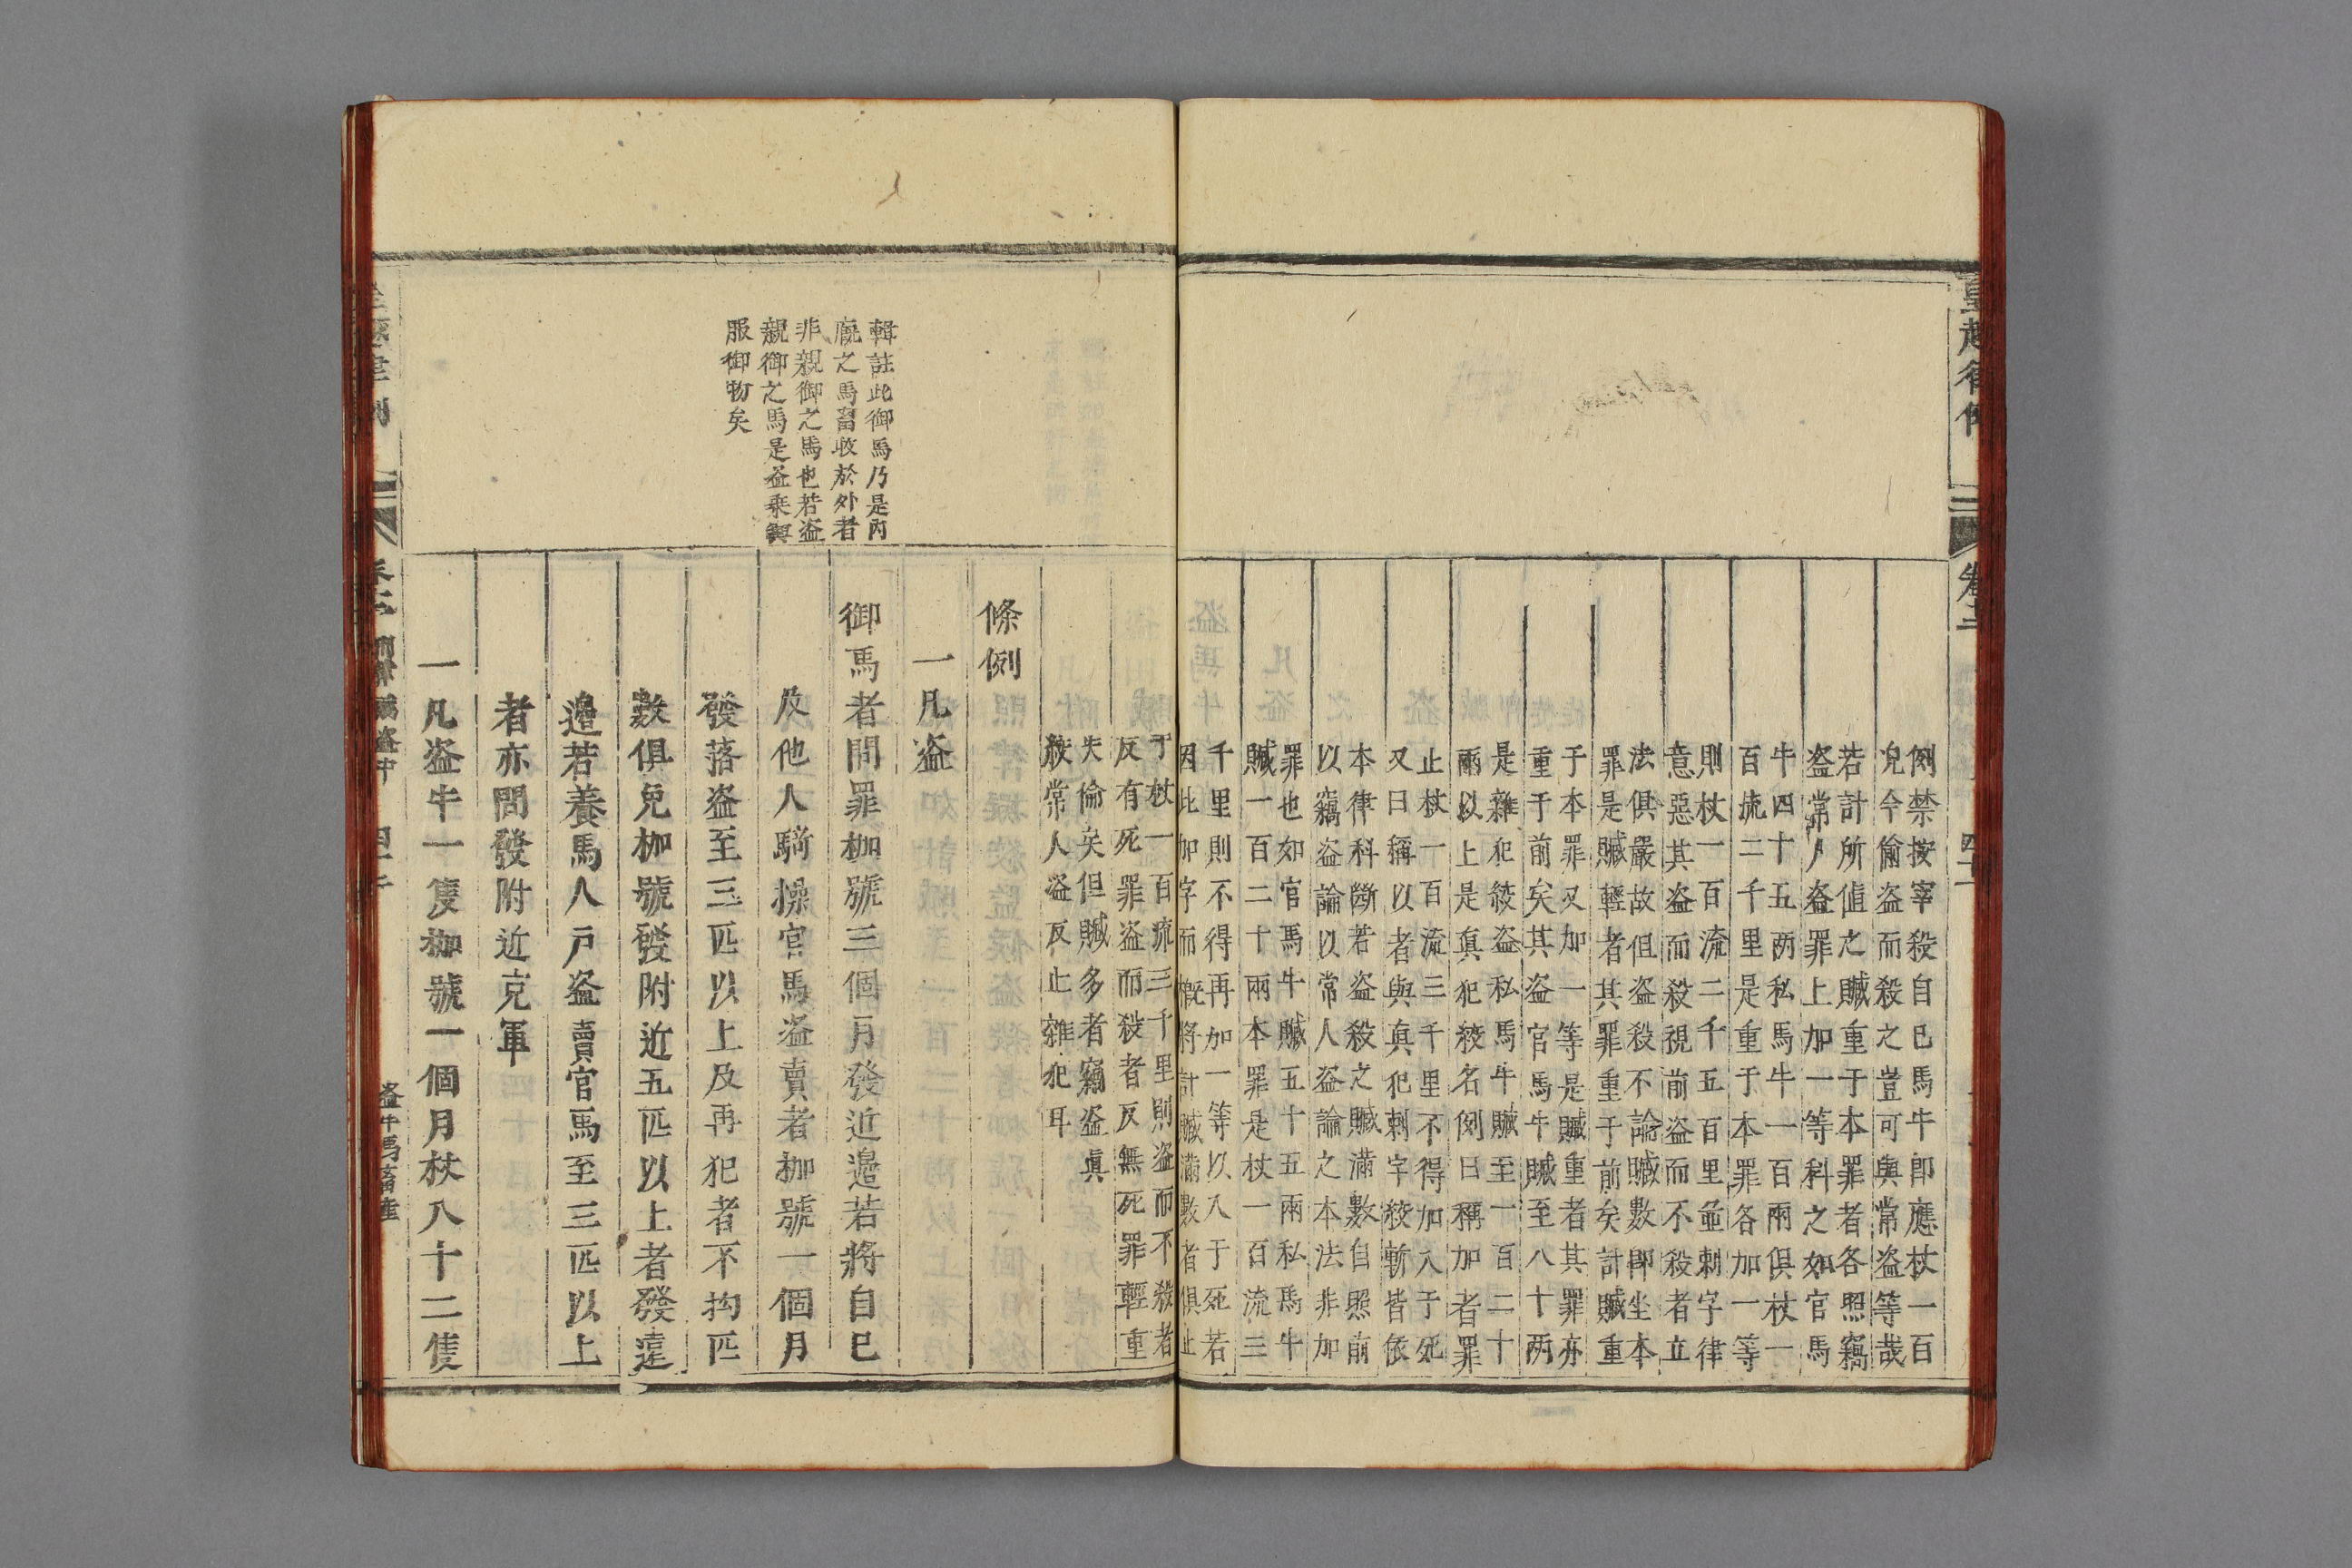 皇越律例
卷十二
四十一
例禁按宰殺自己馬牛即應杖一百
况今偷盗而殺之豈可與常盗等哉
若計所值之贓重于本罪者各照竊
盗常人盗罪上加一等科之如官馬
牛四十五两私馬牛一百兩俱杖一
百流二千里是重于本罪各加一等
則杖一百流二千五百里並刺字律
意惡其盗而殺視前盗而不殺者立
法俱嚴故但盗殺不論贓數即坐本
罪是贓輕者其罪重于前矣計贓重
于本罪又加一等是贓重者其罪亦
重于前矣其盗官馬牛贓至八十两
是雜犯絞盗私馬牛贓至一百二十
兩以上是真犯絞名例曰稱加者罪
止杖一百流三千里不得加入于死
又曰稱以者與真犯刺字絞斬皆依
本律科斷若盗殺之贓滿數自照前
以竊盗論以常人盗論之本法非加
罪也如官馬牛贓五十五兩私馬牛
贓一百二十兩本罪是杖一百流三
千里則不得再加一等以入于死若
因此加字而概將計贓滿數者俱止
于杖一百流三千里則盗而不殺者
反有死罪盗而殺者反無死罪輕重
失倫矣但贓多者竊盗真
絞常人盗反止雜犯耳
條例
一凡盗
御馬者問罪枷號三個月發近邊若將自己
及他人騎操官馬盗賣者枷號一個月
發落盗至三匹以上及再犯者不拘匹
數俱免枷號發附近五匹以上者發遠
邊若養馬人戶盗賣官馬至三匹以上
者亦問發附近克軍
一凡盗牛一隻枷號一個月杖八十二隻
輯註此御馬乃是内
廐之馬畜收於外者
非親御之馬也若盗
親御之馬是盗乗輿
服御物矣
盗牛馬畜產